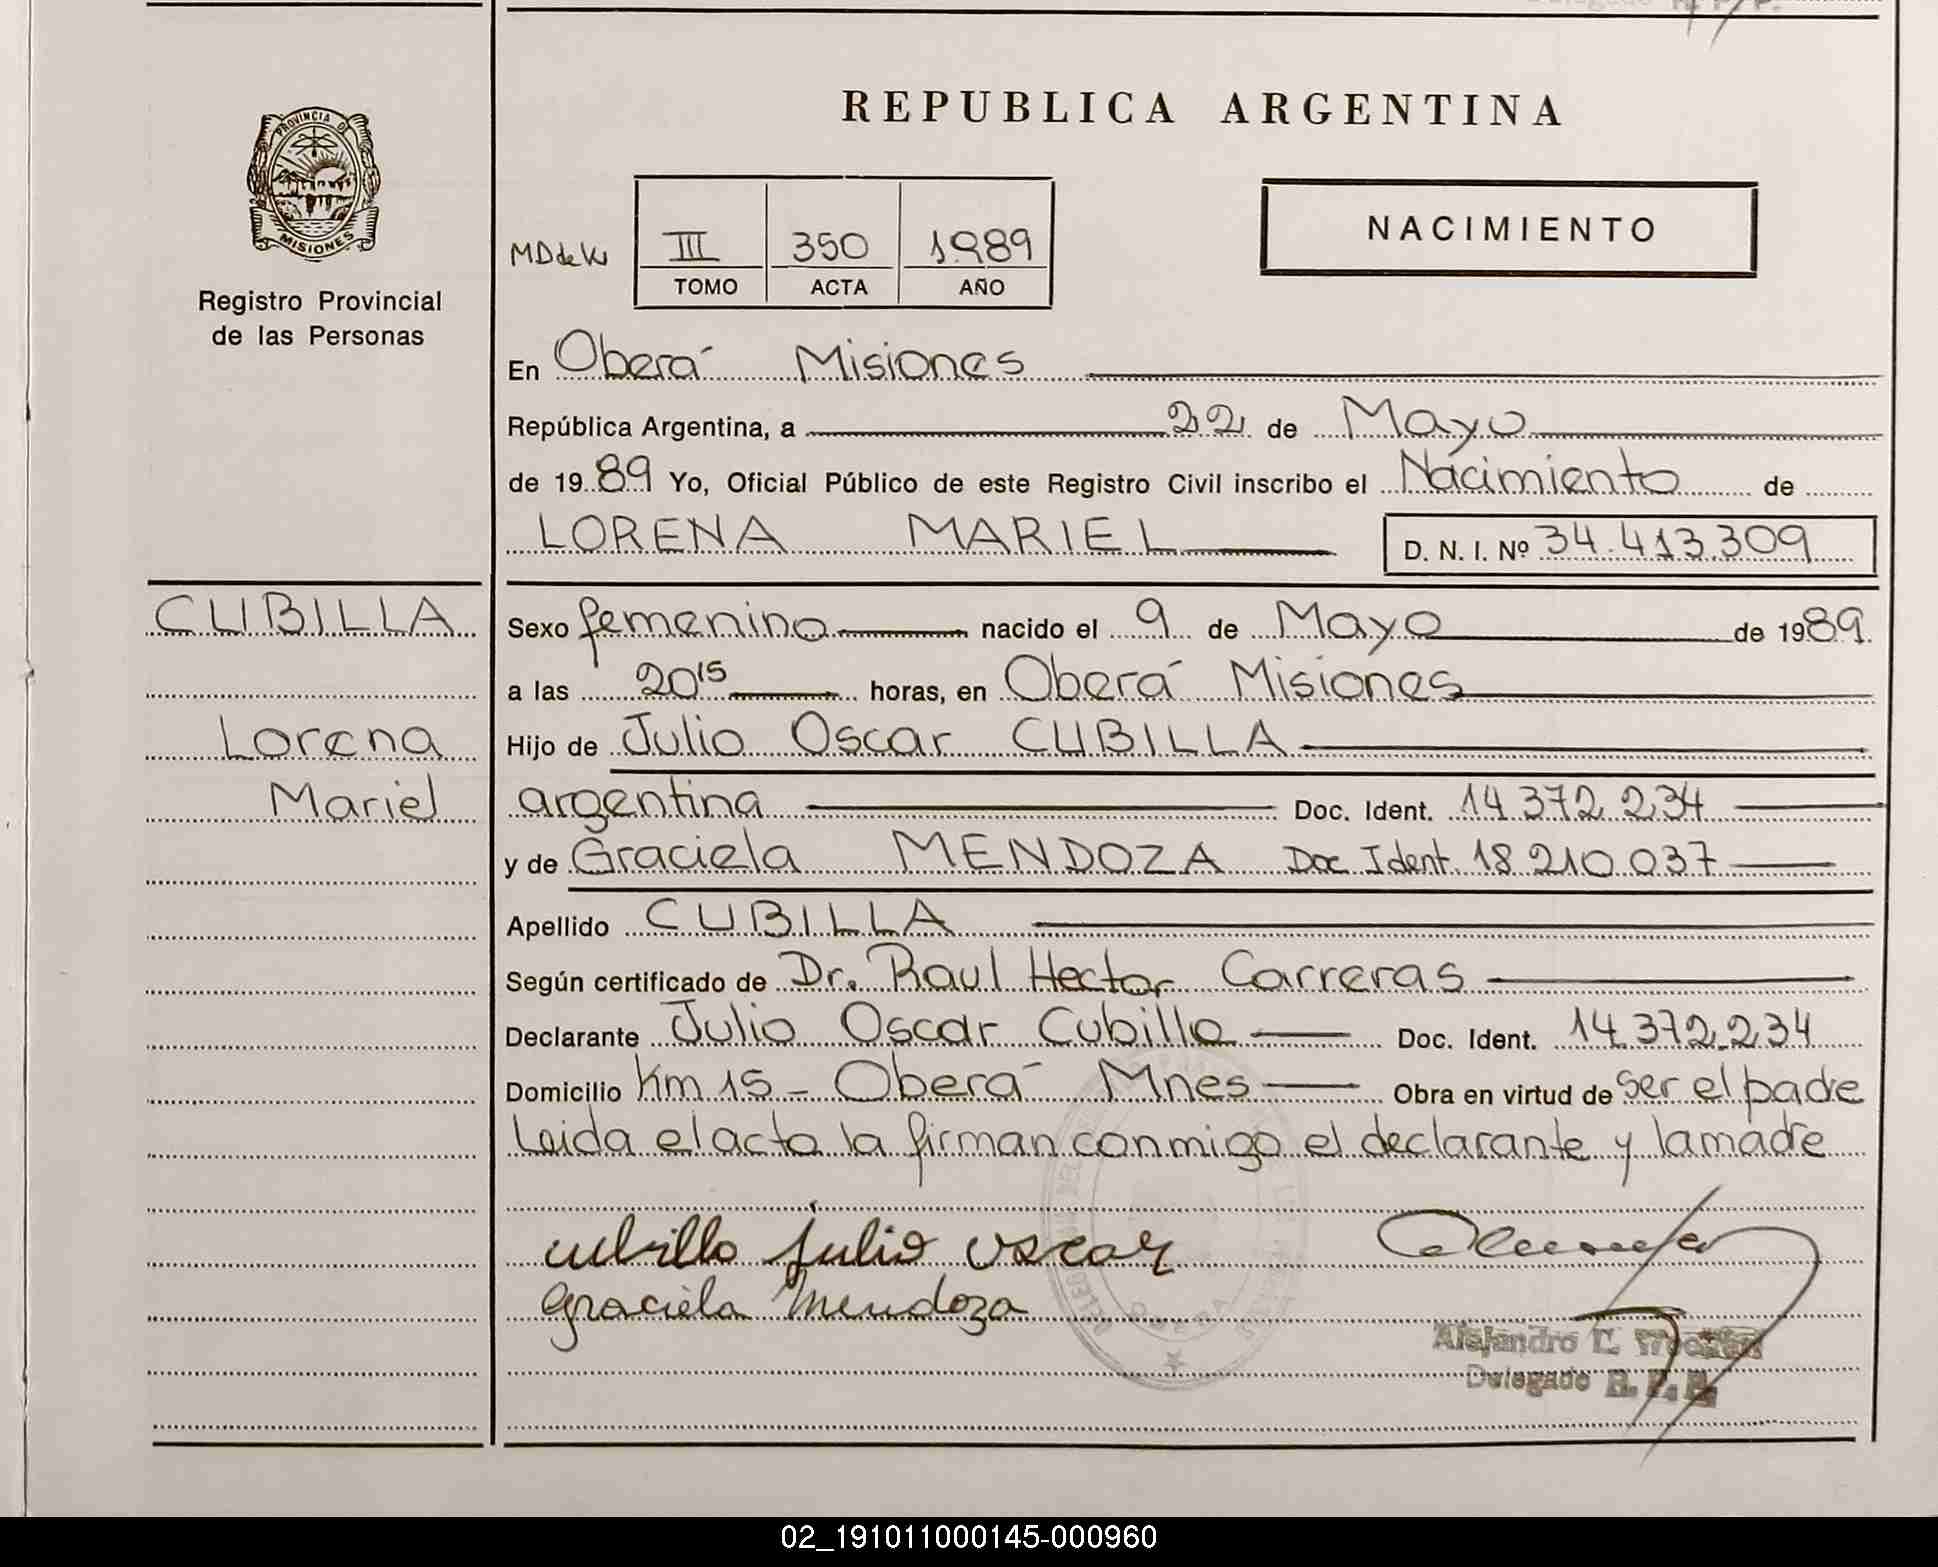 PROVINCIA DE
MISIONES
Registro Provincial
de las Personas
REPUBLICA ARGENTINA
NACIMIENTO
III 350 1989
TOMO ACTA AÑO
En Oberá Misiones
República Argentina, a 22 de Mayo
de 1989 Yo, Oficial Público de este Registro Civil inscribo el Nacimiento de
LORENA MARIEL D. N. I. Nº 34.413.309
CUBILLA
Lorena
Mariel
Sexo femenino nacido el 9 de Mayo de 1989.
a las 20 15 horas, en Oberá Misiones
Hijo de Julio Oscar CUBILLA
argentina Doc. Ident. 14.372.234
y de Graciela MENDOZA Doc Ident. 18.210.037
Apellido CUBILLA
Según certificado de Dr. Raul Hector Carreras
Declarante Julio Oscar Cubilla Doc. Ident. 14.372.234
Domicilio Km 15 - Oberá Mnes Obra en virtud de ser el padre
Leida el acta la firman conmigo el declarante y la madre
cubilla julio oscar
Graciela Mendoza
Alejandro
Delegado R. P. P.
02_191011000145-000960